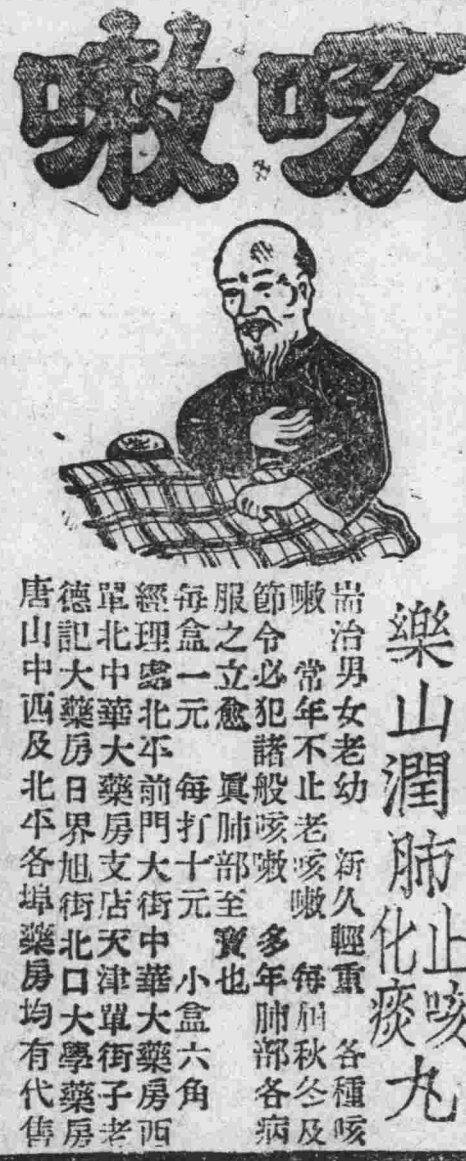 咳嗽
樂山潤肺止咳化痰丸
耑治男女老幼　新久輕重　各種咳
嗽　常年不止老咳嗽　每屆秋冬及
節令必犯諸般咳嗽　多年肺部各病
服之立愈　眞肺部至寶也
每盒一元　每打十元　小盒六角
經理處北平前門大街中華大藥房西
單北中華大藥房支店天津單街子老
德記大藥房日界旭街北口大學藥房
唐山中西及北平各埠藥房均有代售